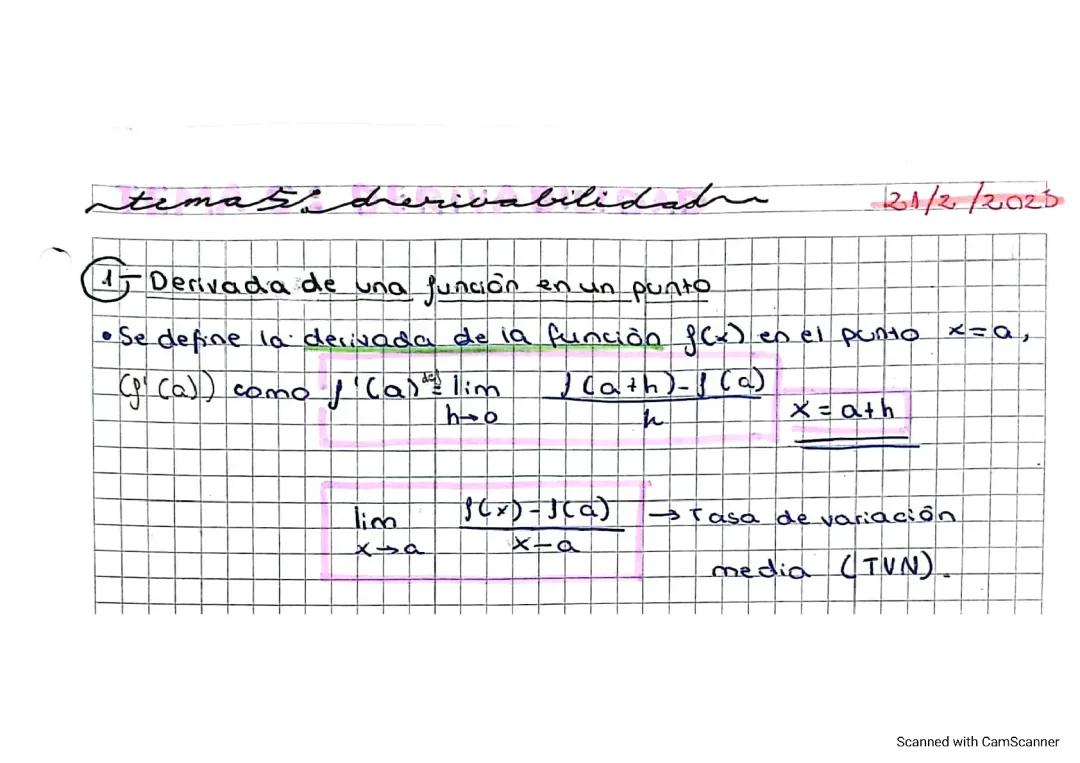 tema 5: derivabilidad 21/2/2025
1- Derivada de una función en un punto
• Se define la derivada de la función f(x) en el punto x=a,
(f'(a)) como f'(a) def= lim f(a+h)-f(a)
h→0 h
x=a+h
lim f(x)-f(a) → Tasa de variación
x→a x-a
media (TVN).
Scanned with CamScanner